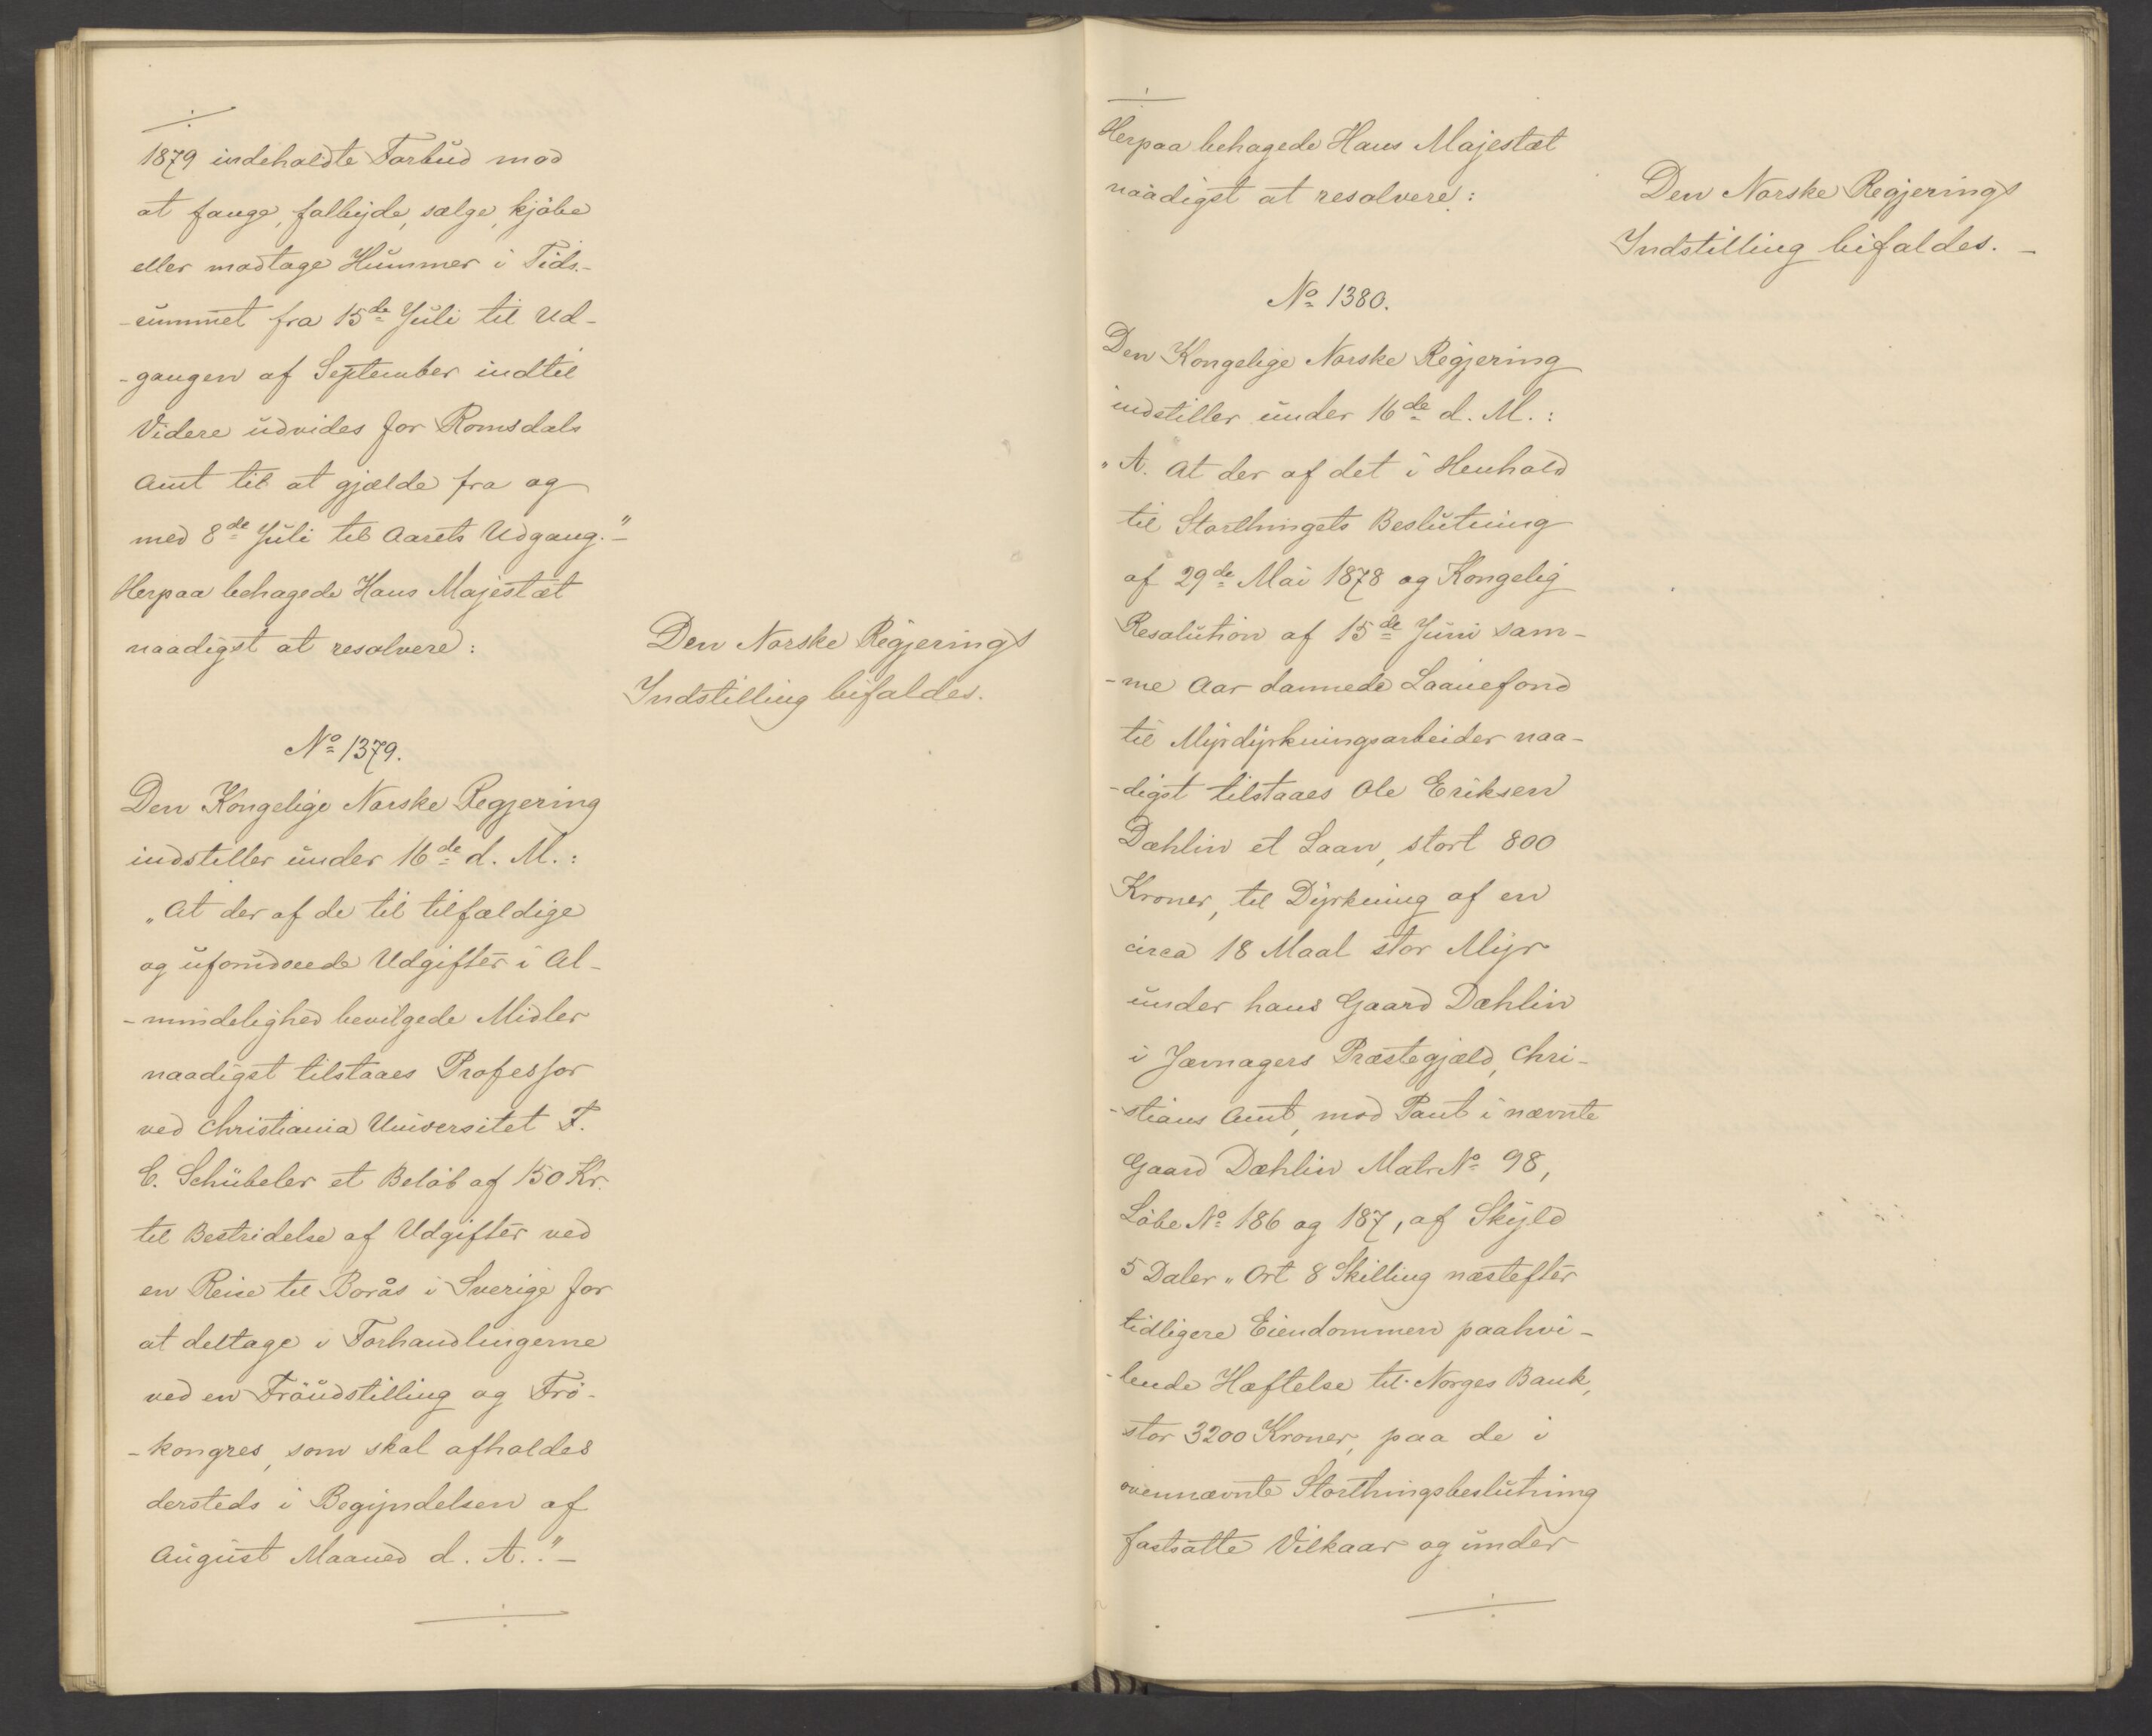 1879 indeholdte Forbud mod
at fange, falbyde, sælge, kjöbe
eller modtage Hummer i Tids-
-rummet fra 15de Juli til Ud-
-gangen af September indtil
Videre udvides for Romsdals
Amt til at gjælde fra og
med 8de Juli til Aarets Udgang."-
Herpaa behagede Hans Majestæt
naadigst at resolvere:
Den Norske Regjerings
Indstilling bifaldes.
No 1379.
Den Kongelige Norske Regjering
indstiller under 16de d. M.:
"At der af de til tilfældige
og uforudseede Udgifter i Al-
-mindelighed bevilgede Midler
naadigst tilstaaes Professor
ved Christiania Universitet F.
C. Schübeler et Belöb af 150 Kr.
til Bestridelse af Udgifter ved
en Reise til Borås i Sverige for
at deltage i Forhandlingerne
ved en Fröudstilling og Frö-
-kongres, som skal afholdes
dersteds i Begyndelsen af
August Maaned d. A.."-
Herpaa behagede Hans Majestæt
naadigst at resolvere:
Den Norske Regjerings
Indstilling bifaldes. -
No 1380.
Den Kongelige Norske Regjering
indstiller under 16de d. M.:
"A. At der af det i Henhold
til Storthingets Beslutning
af 29de Mai 1878 og Kongelig
Resolution af 15de Juni sam-
-me Aar dannede Laanefond
til Myrdyrkningsarbeider naa-
-digst tilstaaes Ole Eriksen
Dæhlin et Laan, stort 800
Kroner, til Dyrkning af en
circa 18 Maal stor Myr
under hans Gaard Dæhlin
i Jævnagers Præstegjæld, Chri-
-stians Amt, mod Pant i nævnte
Gaard Dæhlin Matr No 98,
Löbe No 186 og 187, af Skyld
5 Daler " Ort 8 Skilling næstefter
tidligere Eiendommen paahvi-
-lende Hæftelse til Norges Bank,
stor 3200 Kroner, paa de i
ovennævnte Storthingsbeslutning
fastsatte Vilkaar og under